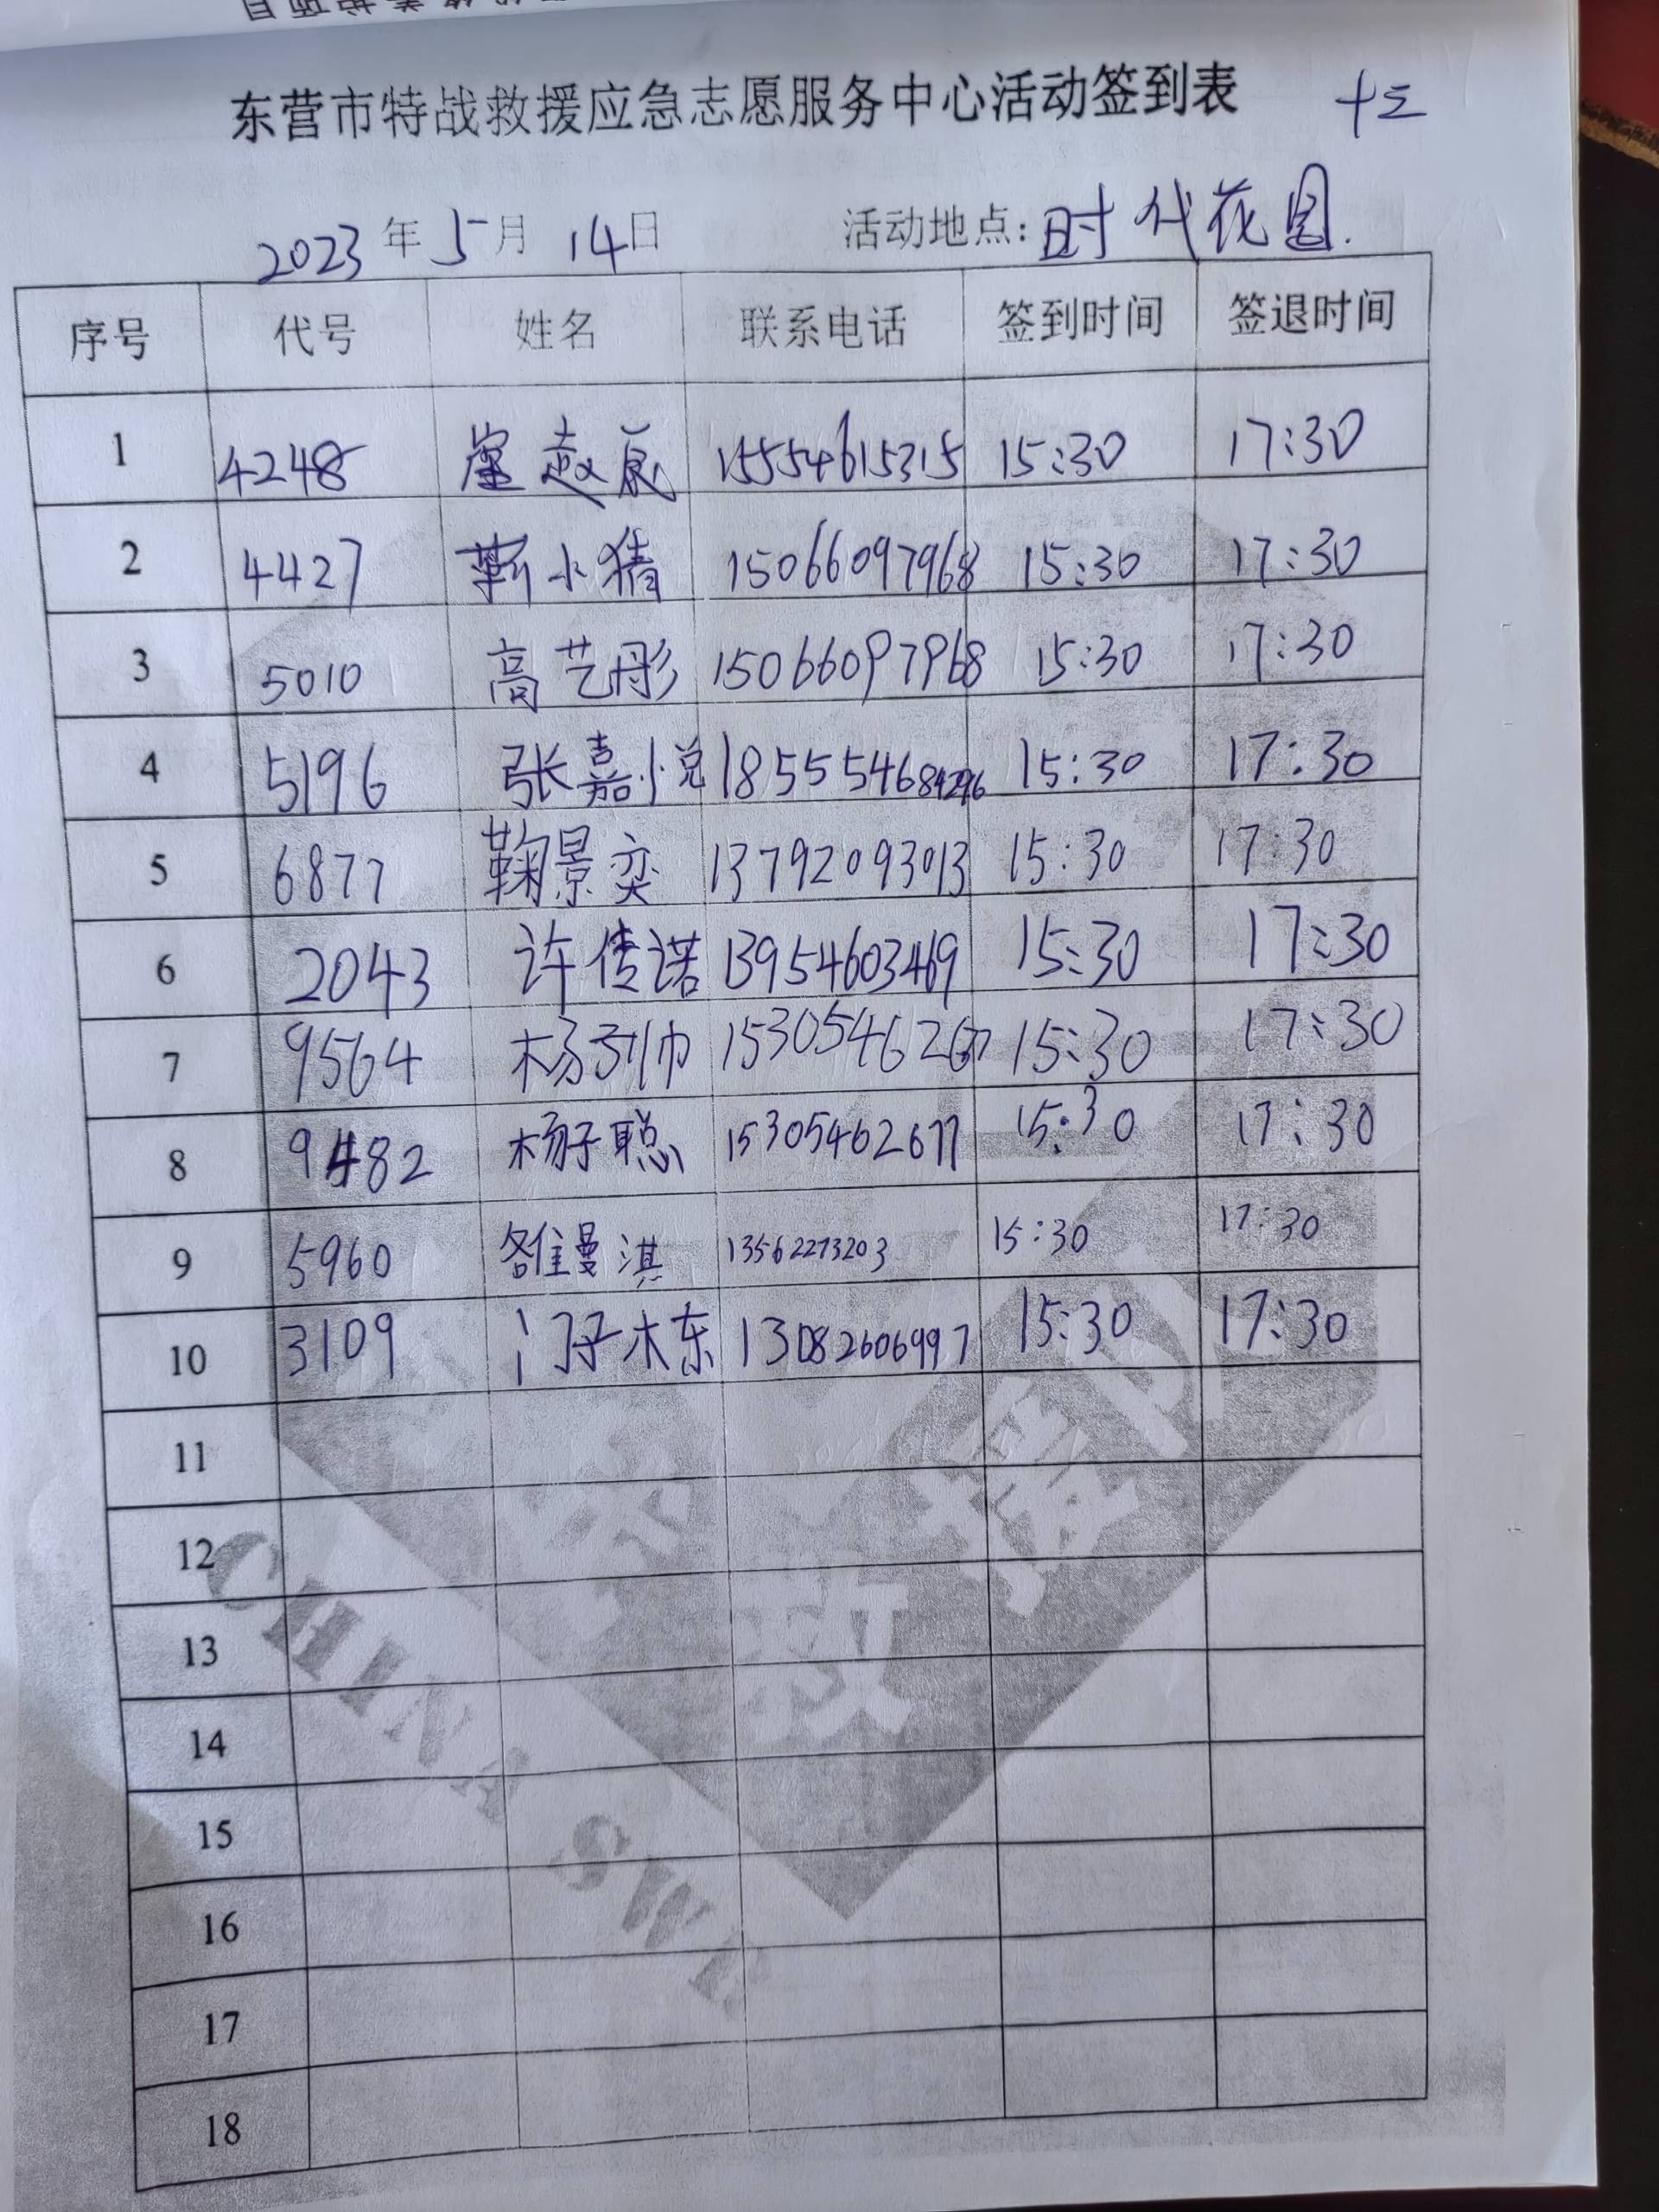 东营市特战救援应急志愿服务中心活动签到表 十三
2023年5月14日 活动地点:时代花园.
序号 代号 姓名 联系电话 签到时间 签退时间
1 4248 15554615315 15:30 17:30
2 4427 靳小猜 15066097968 15:30 17:30
3 5010 高艺彤 15066097968 15:30 17:30
4 5196 张嘉悦 185554684296 15:30 17:30
5 6877 鞠景奕 13792093013 15:30 17:30
6 2043 许传诺 13954603469 15:30 17:30
7 9564 15:30 17:30
8 9482 杨子聪 15305462677 15:30 17:30
9 5960 曼淇 13562273203 15:30 17:30
10 3109 13082606997 15:30 17:30
11
12
13
14
15
16
17
18
救援
CHINA SWE